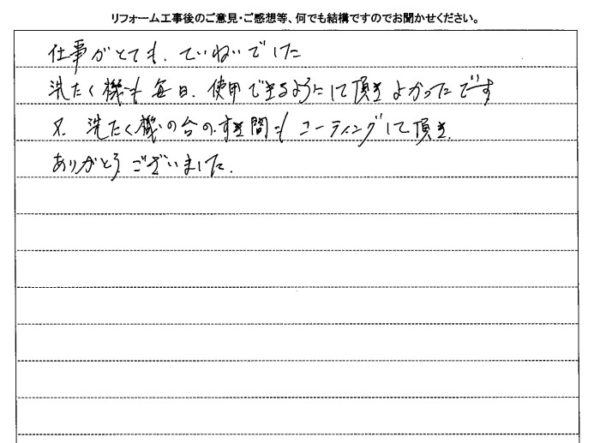 リフォーム工事後のご意見・ご感想等、何でも結構ですのでお聞かせください。
仕事がとても、ていねいでした
洗たく機も毎日、使用できるようにして頂きよかったです
又、洗たく機の台のすき間もコーティングして頂き、
ありがとうございました。